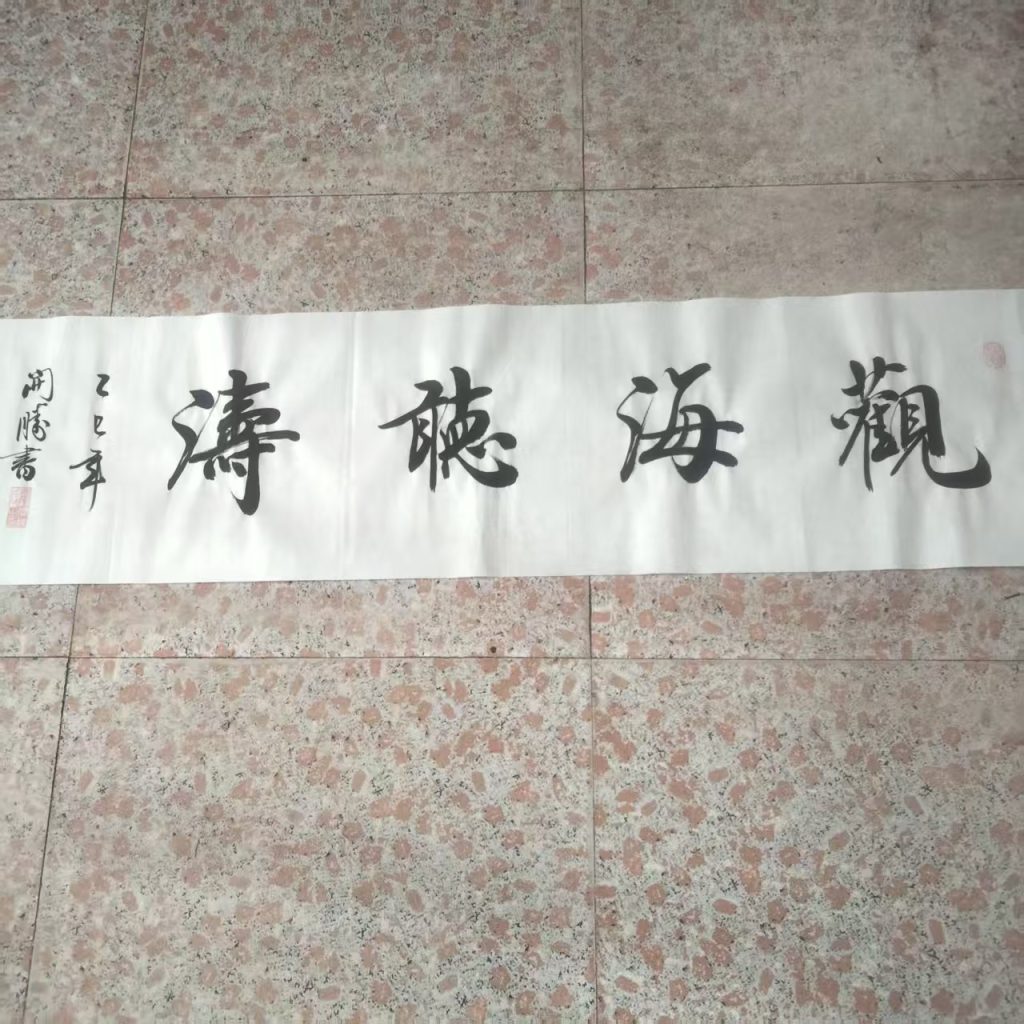 觀海聽濤
乙巳年
開勝書